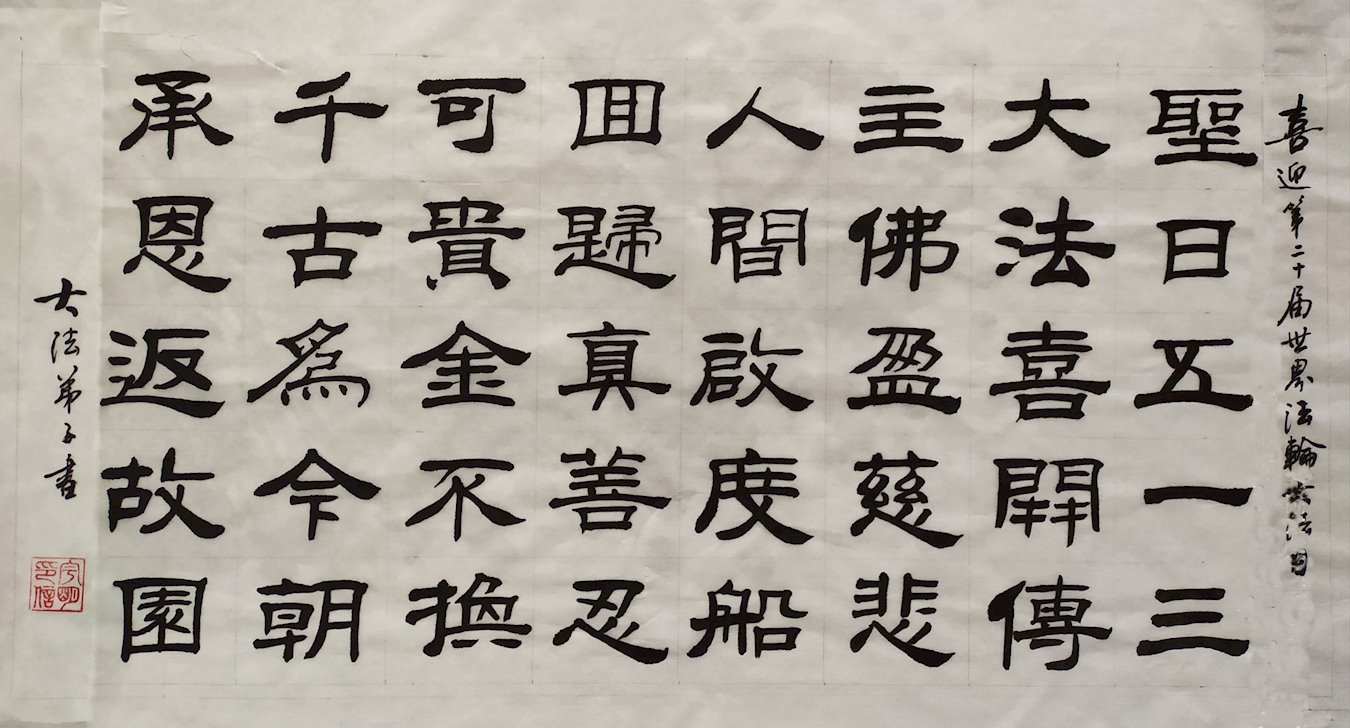 喜迎第二十届世界法輪大法日
聖日五一三
大法喜開傳
主佛盈慈悲
人間啟度船
囬歸真善忍
可貴金不換
千古為今朝
承恩返故園
大法弟子書